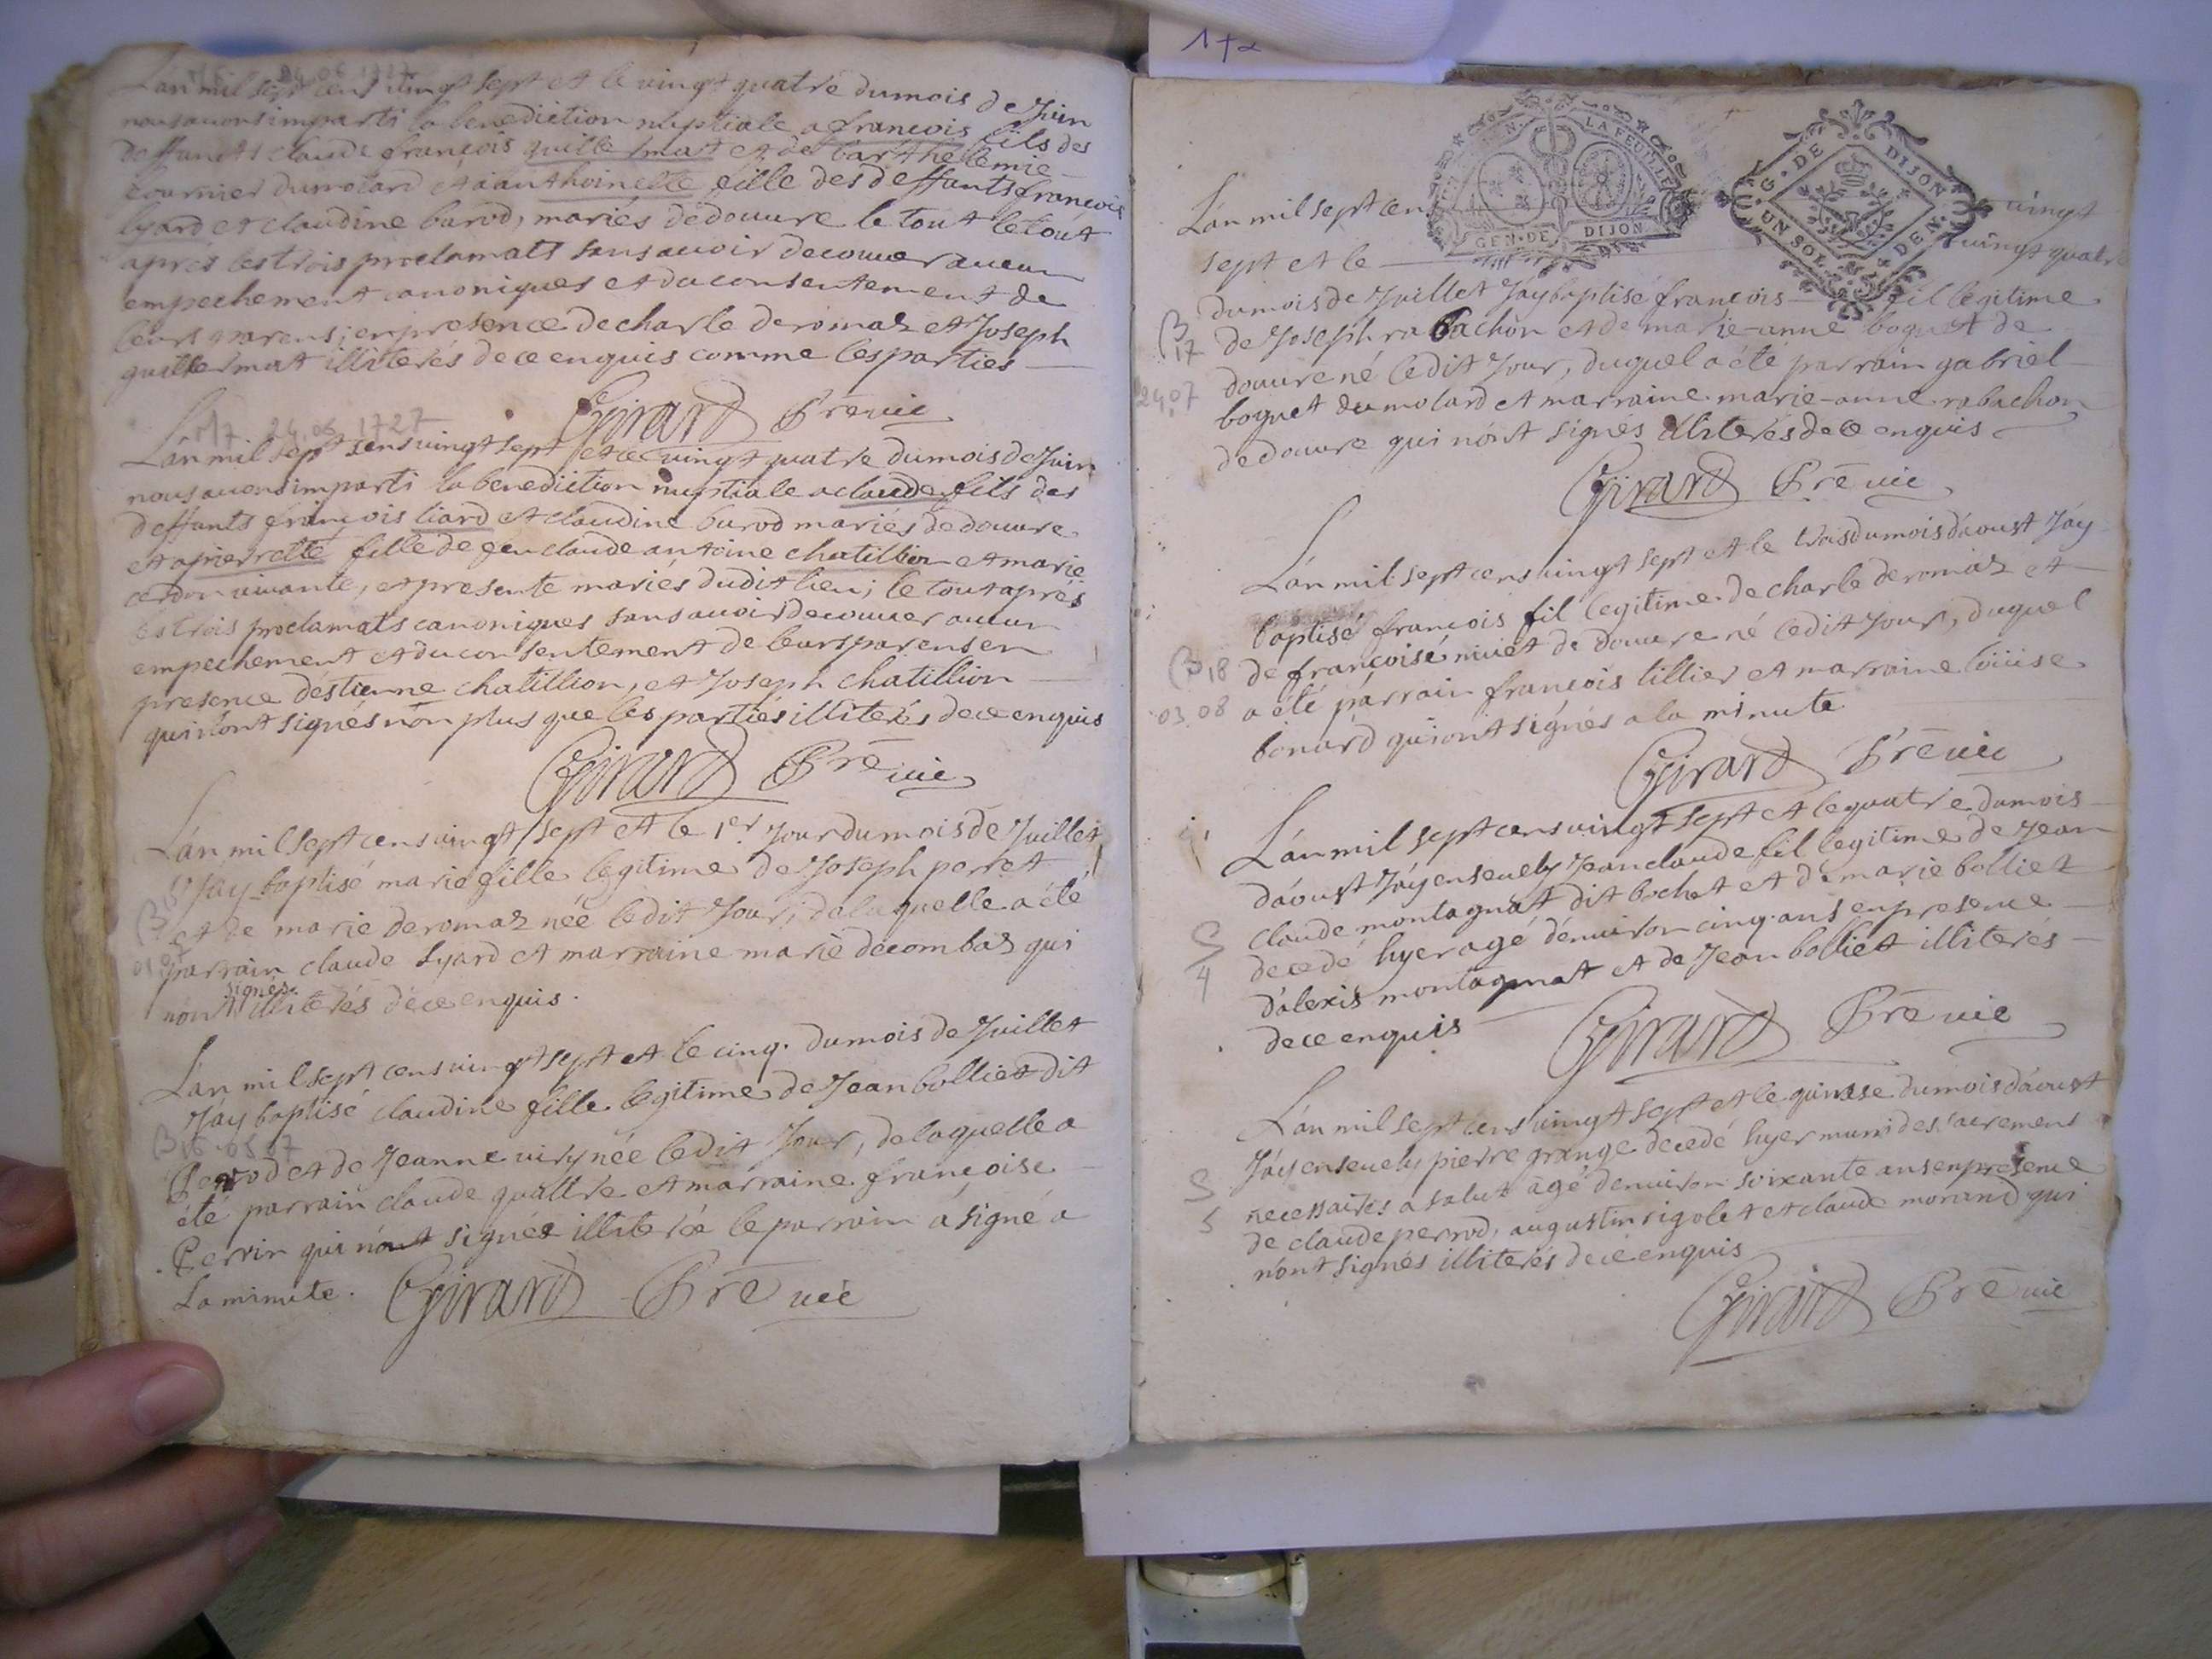 M6 24.06.1727
L'an mil sept cens vingt sept et le vingt quatre du mois de Juin
nous avons imparti la benediction nuptiale a francois fils des
deffuncts claude françois guillermat et de barthelemie
cournier dumolard et a anthoinette fille des deffunts françois
lyard et claudine barod, mariés dedouure le tout le tout
aprés les trois proclamats sans avoir decouver aucun
empechement canoniques et du consentement de
leurs parens; en presence de charle deromas et Joseph
guillermat illiterés de ce enquis comme les parties
Girard Prē vic
M7 24.06 1727
L'an mil sept cens vingt sept et le vingt quatre du mois de Juin
nous avons imparti la benediction nuptiale a claude fils des
deffunts françois liard et claudine burod mariés de douure
et a pierrette fille de feu claude antoine chatillion et marie
cerdon vivante, et presente mariés dudit lieu; le tout aprés
les trois proclamats canoniques sans avoir decouver aucun
empechement et du consentement de leurs parens en
presence d'estienne chatillion, et Joseph chatillion
qui n'ont signés non plus que les parties illiterés de ce enquis
Girard Prē vic
L'an mil sept cens vingt sept et le 1er Jour du mois de Juillet
B15 J'ay baptisé marie fille legitime de Joseph perret
et de marie deromas née ledit Jour, de laquelle a été
01 07 parrain claude lyard et marraine marie decombas qui
n'ont signés illiterés de ce enquis.
L'an mil sept cens vingt sept et le cinq. du mois de Juillet
J'ay baptisé claudine fille legitime de Jean bolliet dit
B16 05 07
Perrod et de Jeanne viry née ledit Jour, de laquelle a
été parrain claude quattre et marraine françoise
Perrin qui n'ont signés illiterée le parrain a signé a
La minute. Girard Prē vic
172
GEN. DE DIJON
LA FEUILLE
G. DE DIJON
UN SOL DEN.
L'an mil sept cen vingt
sept et le vingt quatre
du mois de Juillet J'ay baptisé francois fil legitime
B17 de Joseph rabachon et de marie-anne boguet de
24.07 douure né ledit Jour, duquel a été parrain gabriel
boguet du molard et marraine marie-anne rabachon
de douure qui n'ont signés illiterés de ce enquis
Girard Prē vic
L'an mil sept cens vingt sept et le trois du mois d'aoust J'ay
baptisé françois fil legitime de charle deromas et
B18 de françoise nivet de douure né ledit Jour, duquel
03.08 a été parrain françois tillier et marraine loüise
bonard qui ont signés a la minute
Girard Prē vic
L'an mil sept cens vingt sept et le quatre du mois
d'aoust J'ay ensevely Jean claude fil legitime de Jean
claude montagnat dit bochet et de marie bolliet
S4 decedé hyer agé d'environ cinq ans en presence
d'alexis montagnat et de Jean bolliet illiterés
de ce enquis
Girard Prē vic
L'an mil sept cens vingt sept et le quinse du mois d'aoust
J'ay ensevely pierre grange decedé hyer muni des sacremens
S5 necessaires a salut agé d'environ soixante ans en presence
de claude perrod, augustin rigolet et claude morand qui
n'ont signés illiterés de ce enquis
Girard Prē vic